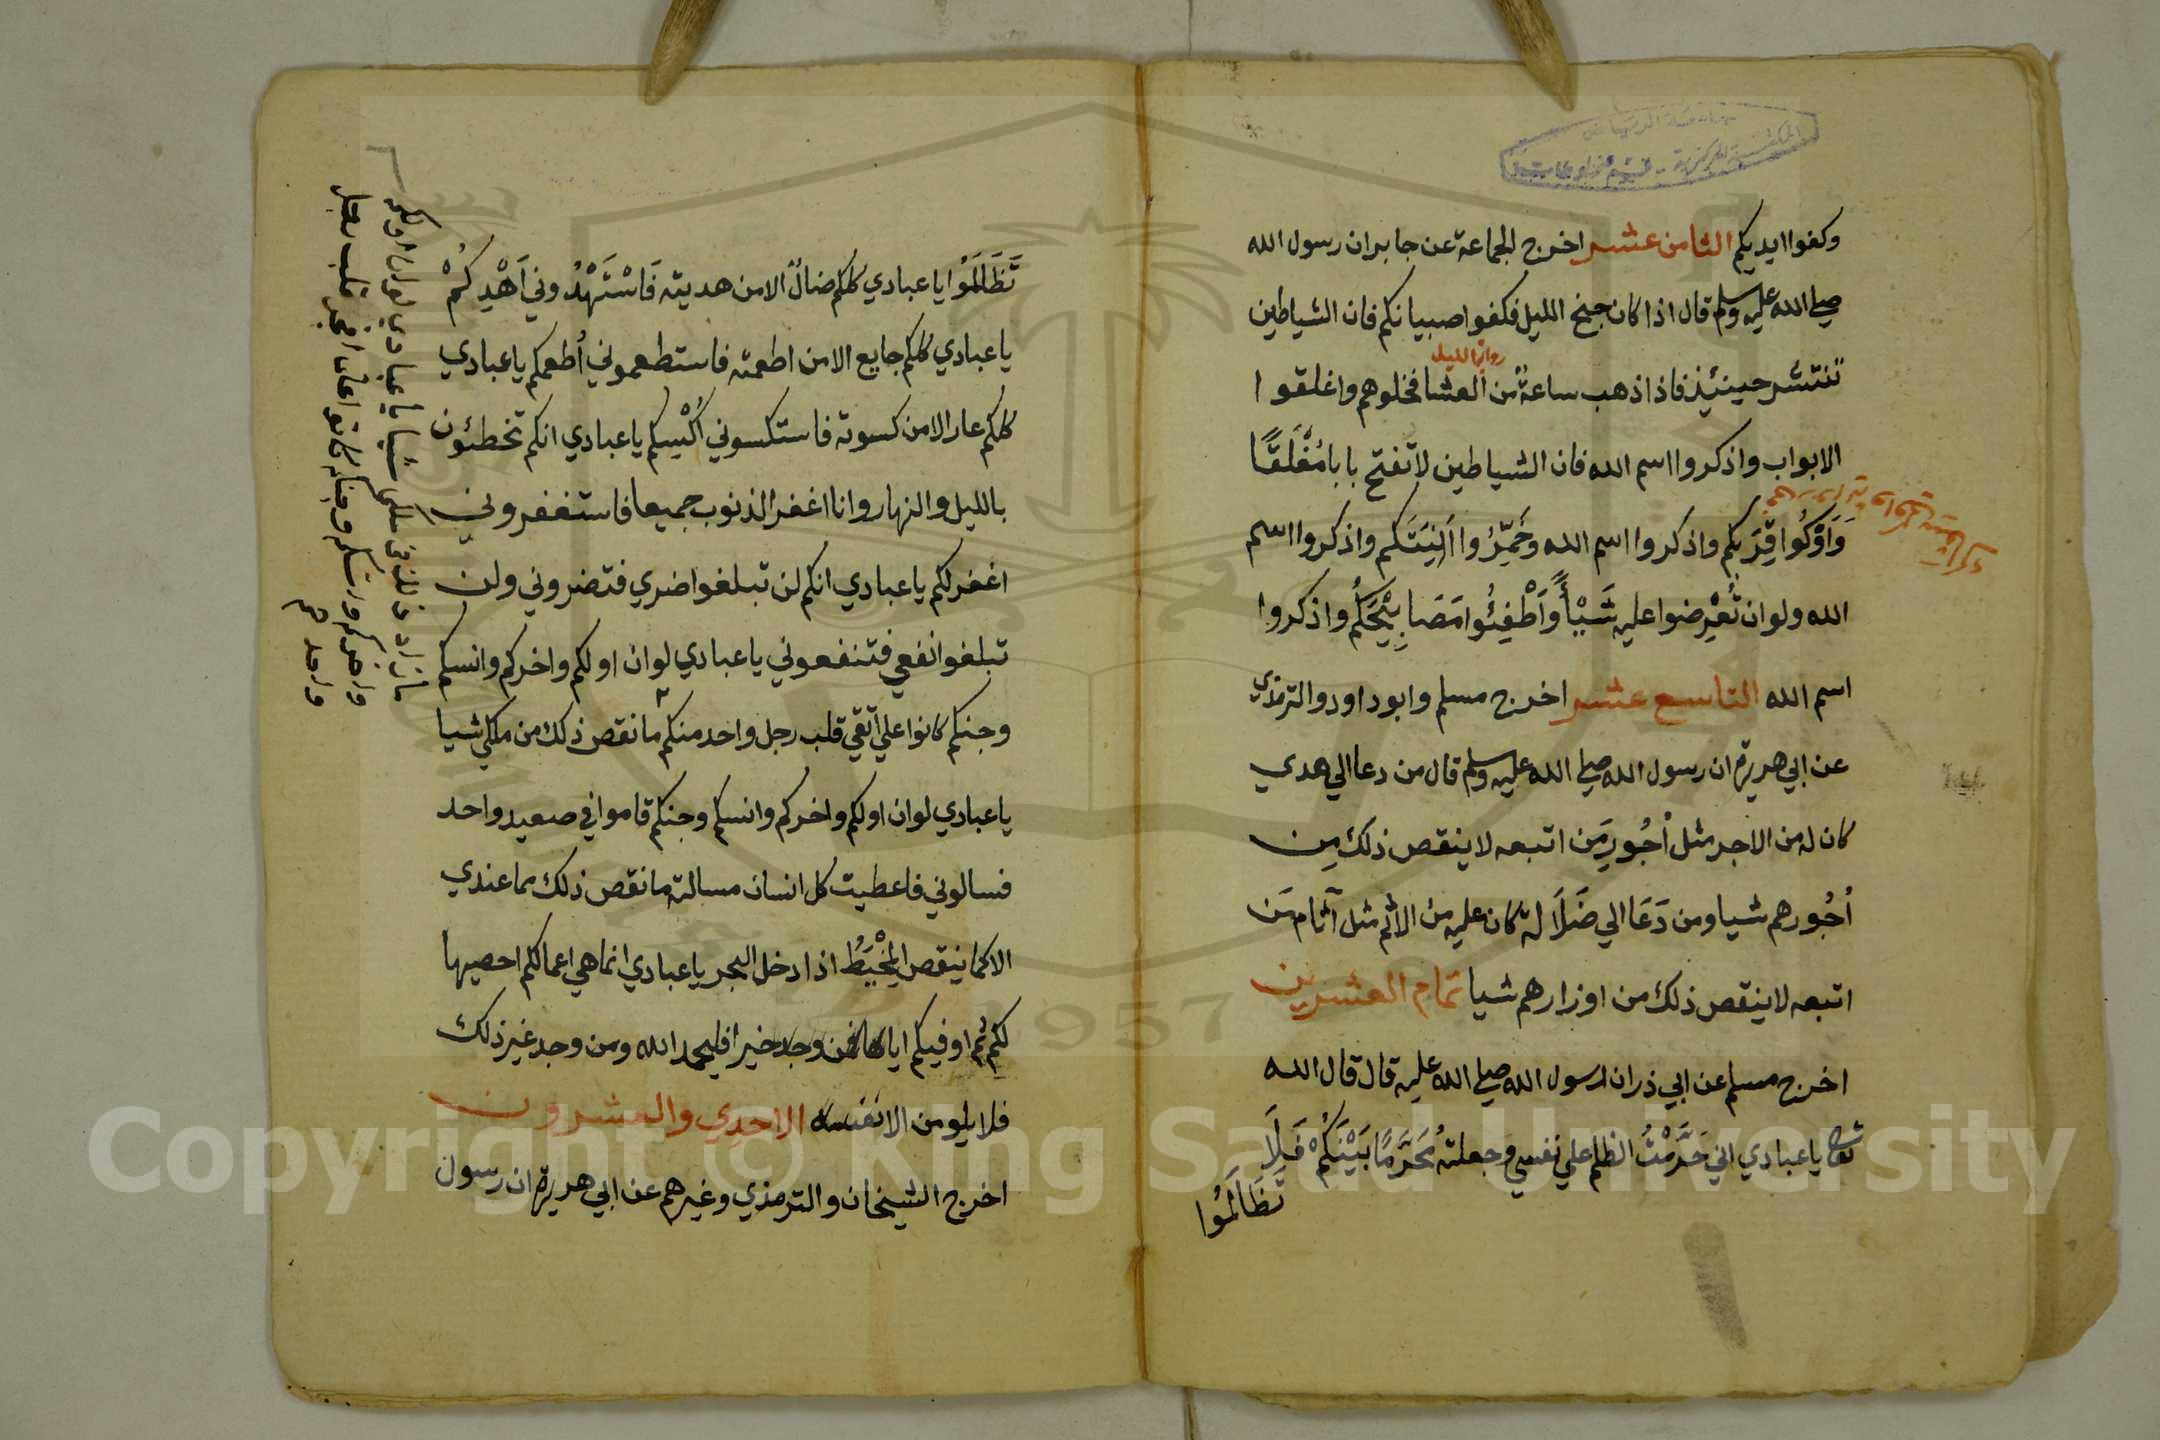 وكفوا ايديكم الثامن عشر اخرج الجماعة عن جابر ان رسول الله
صلي الله عليه وسلم قال اذا كان جنح الليل فكفوا صبيانكم فان الشياطين
تنتشر حينئذ فاذا ذهب ساعة من العشا فخلوهم واغلقوا
الابواب واذكروا اسم الله فان الشياطين لا تفتح بابا مُغْلَقًا
وَاَوْكُوا قِرَبكم واذكروا اسم الله وخَمِّرُوا اَنِيَتَكم واذكروا اسم
الله ولو ان تُعْرِضوا عليه شَيْأً وَاَطْفِئُوا مَصَابِيْحَكُم واذكروا
اسم الله التاسع عشر اخرج مسلم وابو داود والترمذي
عن ابي هريرة ان رسول الله صلي الله عليه وسلم قال من دعا الي هدي
كان له من الاجر مثل اُجُورِ مَن اتبعه لا ينقص ذلك مِن
اُجُورهم شيا ومن دَعَا الي ضَلَالة كان عليه من الاثم مثل آثام مَن
اتبعه لا ينقص ذلك من اوزارهم شيا تمام العشرين
اخرج مسلم عن ابي ذر ان رسول الله صلي الله عليه قال قال الله
يا عبادي اني حَرَّمْتُ الظلم علي نفسي وجعلته مُحَرَّمًا بَيْنَكُمْ فَلَا
تَظَالَمُوا
تَظَالَمُوا يا عبادي كلكم ضالٌ الا من هديته فَاسْتَهْدُوني اَهْدِكُمْ
يا عبادي كلكم جايع الا من اطعمته فاستطعموني اُطعمكم يا عبادي
كلكم عار الا من كسوته فاستكسوني اُكْسِكم يا عبادي انكم تخطئون
بالليل والنهار وانا اغفر الذنوب جميعا فاستغفروني
اغفر لكم يا عبادي انكم لن تبلغوا ضري فتضروني ولن
تبلغوا نفعي فتنفعوني يا عبادي لو ان اولكم واخركم وانسكم
وجنكم كانوا علي اتقي قلب رجل واحد منكم ما نقص ذلك من ملكي شيا
يا عبادي لو ان اولكم واخركم وانسكم وجنكم قاموا في صعيد واحد
فسالوني فاعطيت كل انسان مسالته ما نقص ذلك مما عندي
الا كما ينقص المِخْيَطُ اذا دخل البحر يا عبادي انما هي اعمالكم احصيها
لكم ثم اوفيكم اياها فمن وجد خيرا فليحمد الله ومن وجد غير ذلك
فلا يلومن الا نفسه الاحدي والعشرون
اخرج الشيخان والترمذي وغيرهم عن ابي هريرة ان رسول
ما زاد ذلك في ملكي شيا يا عبادي لو ان اولكم
واخركم وانسكم وجنكم كانوا علي افجر قلب رجل
واحد
Copyright © King Saud University
1957